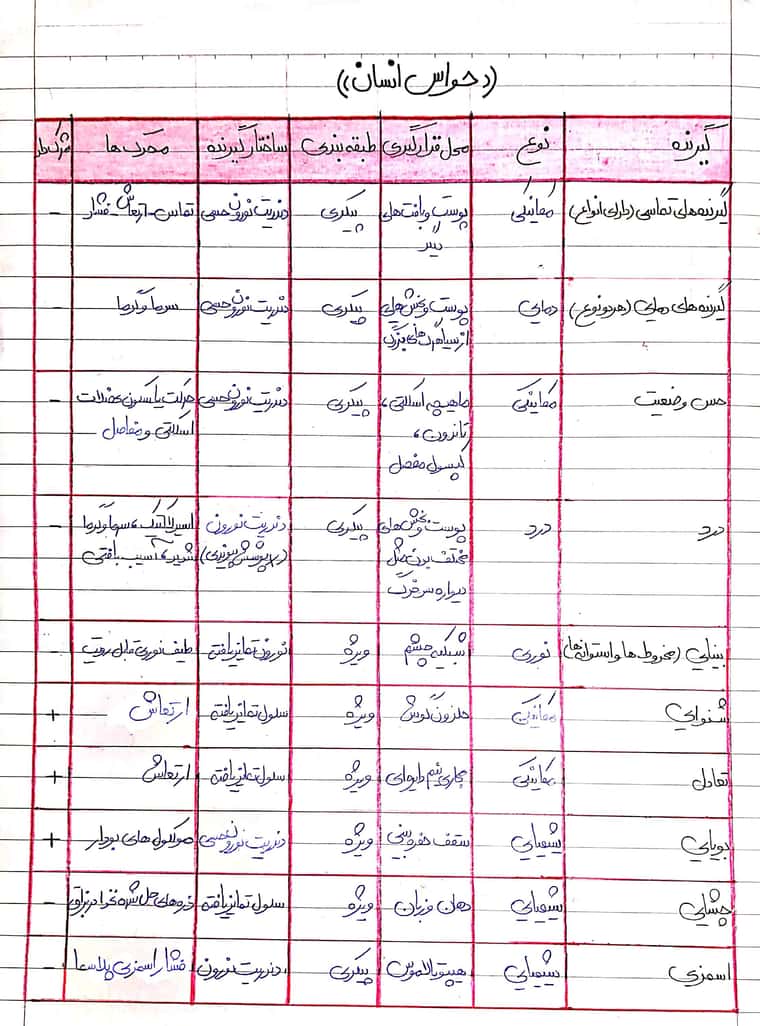 ((حواس انسان))
گیرنده نوع محل قرارگیری طبقه بندی ساختار گیرنده محرک ها مژک دار
گیرنده های تماسی (دارای انواع) مکانیکی پوست و بافت های دیگر پیکری دندریت نورون حسی تماس - ارتعاش - فشار -
گیرنده های دمایی (هر دو نوع) دمایی پوست و بخش هایی از سیاهرگ های بزرگ پیکری دندریت نورون حسی سرما و گرما -
حس وضعیت مکانیکی ماهیچه اسکلتی، تاندون، کپسول مفصل پیکری دندریت نورون حسی حرکت یا سکون عضلات اسکلتی و مفاصل -
درد درد پوست و بخش های مختلف بدن مثل دیواره سرخرگ پیکری دندریت نورون (بدون پوشش پیوندی) اسید لاکتیک، سرما و گرما شدید، آسیب بافتی -
بینایی (مخروط ها و استوانه ها) نوری شبکیه چشم ویژه نورون تمایز یافته طیف نوری قابل رویت -
شنوایی مکانیکی حلزون گوش ویژه سلول تمایز یافته ارتعاش +
تعادل مکانیکی مجاری نیم دایره ای ویژه سلول تمایز یافته ارتعاش +
بویایی شیمیایی سقف حفره بینی ویژه دندریت نورون حسی مولکول های بودار +
چشایی شیمیایی دهان و زبان ویژه سلول تمایز یافته ذره های حل شده غذا در بزاق -
اسمزی شیمیایی هیپوتالاموس پیکری دندریت نورون فشار اسمزی پلاسما -